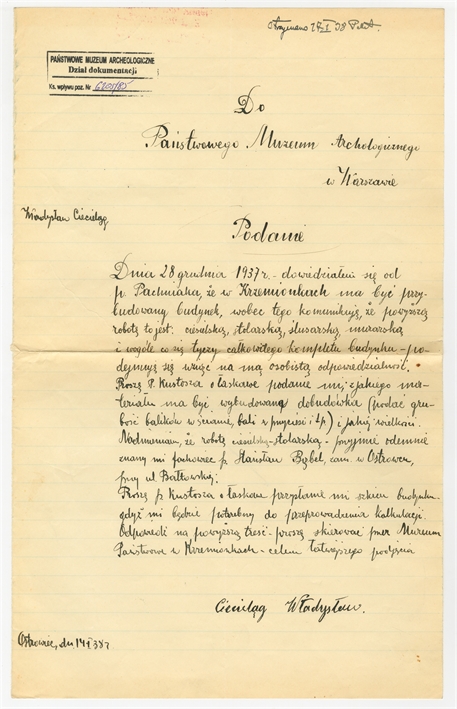 Otrzymano 17 I 38
PAŃSTWOWE MUZEUM ARCHEOLOGICZNE
Dział dokumentacji
Ks. wpływu poz. Nr
Do
Państwowego Muzeum Archologicznego
w Warszawie
Władysław Cieciląg
Podanie
Dnia 28 grudnia 1937 r. - dowiedziałem się od
p. Pachniaka, że w Krzemionkach ma być przy-
budowany budynek, wobec tego komunikuję, że powyższą
robotę to jest: ciesielską, stolarską, ślusarską, murarską
i wogóle co się tyczy całkowitego kompletu budynku - po-
dejmuję się wziąć na mą osobistą odpowiedzialność.
Proszę P. Kustosza o łaskawe podanie mi, z jakiego ma-
terialu ma być wybudowaną dobudówka (podać gru-
bość balików w ścianie, bali w przyciesi i t.p.) i jakiej wielkości.
Nadmieniam, że robotę ciesielsko-stolarską - przyjmie odemnie
znany mi fachowiec p. Stanisław Bąbel, zam. w Ostrowcu,
przy ul. Bałtowskiej.
Proszę p. Kustosza o łaskawe przysłanie mi szkicu budynku
gdyż mi będzie potrzebny do przeprowadzenia kalkulacji.
Odpowiedź na powyższą treść - proszę skierować przez Muzeum
Państwowe w Krzemionkach - celem łatwiejszego podjęcia
Cieciląg Władysław.
Ostrowiec, dn. 14 I 38 r